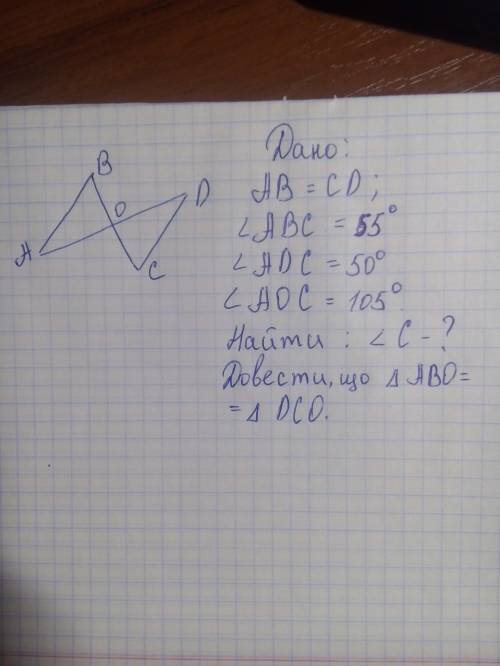 Дано:
B
AB = CD;
O
D
∠ABC = 55°
A
∠ADC = 50°
C
∠AOC = 105°.
Найти: ∠C - ?
Довести, що △ABO =
= △DCO.